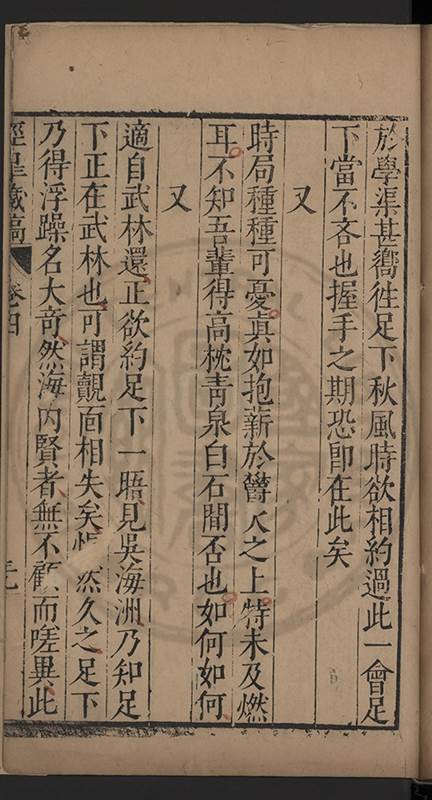 於學渠甚嚮徃足下秋風時欲相約過此一會足
下當不吝也握手之期恐卽在此矣
又
時局種種可憂眞如抱薪於鬱火之上特未及燃
耳不知吾輩得高枕靑泉白石間否也如何如何
又
適自武林還正欲約足下一晤見吳海洲乃知足
下正在武林也可謂覿面相失矣 然久之足下
乃得浮躁名大奇然海內賢者無不顧而嗟異此
藏稿 卷四